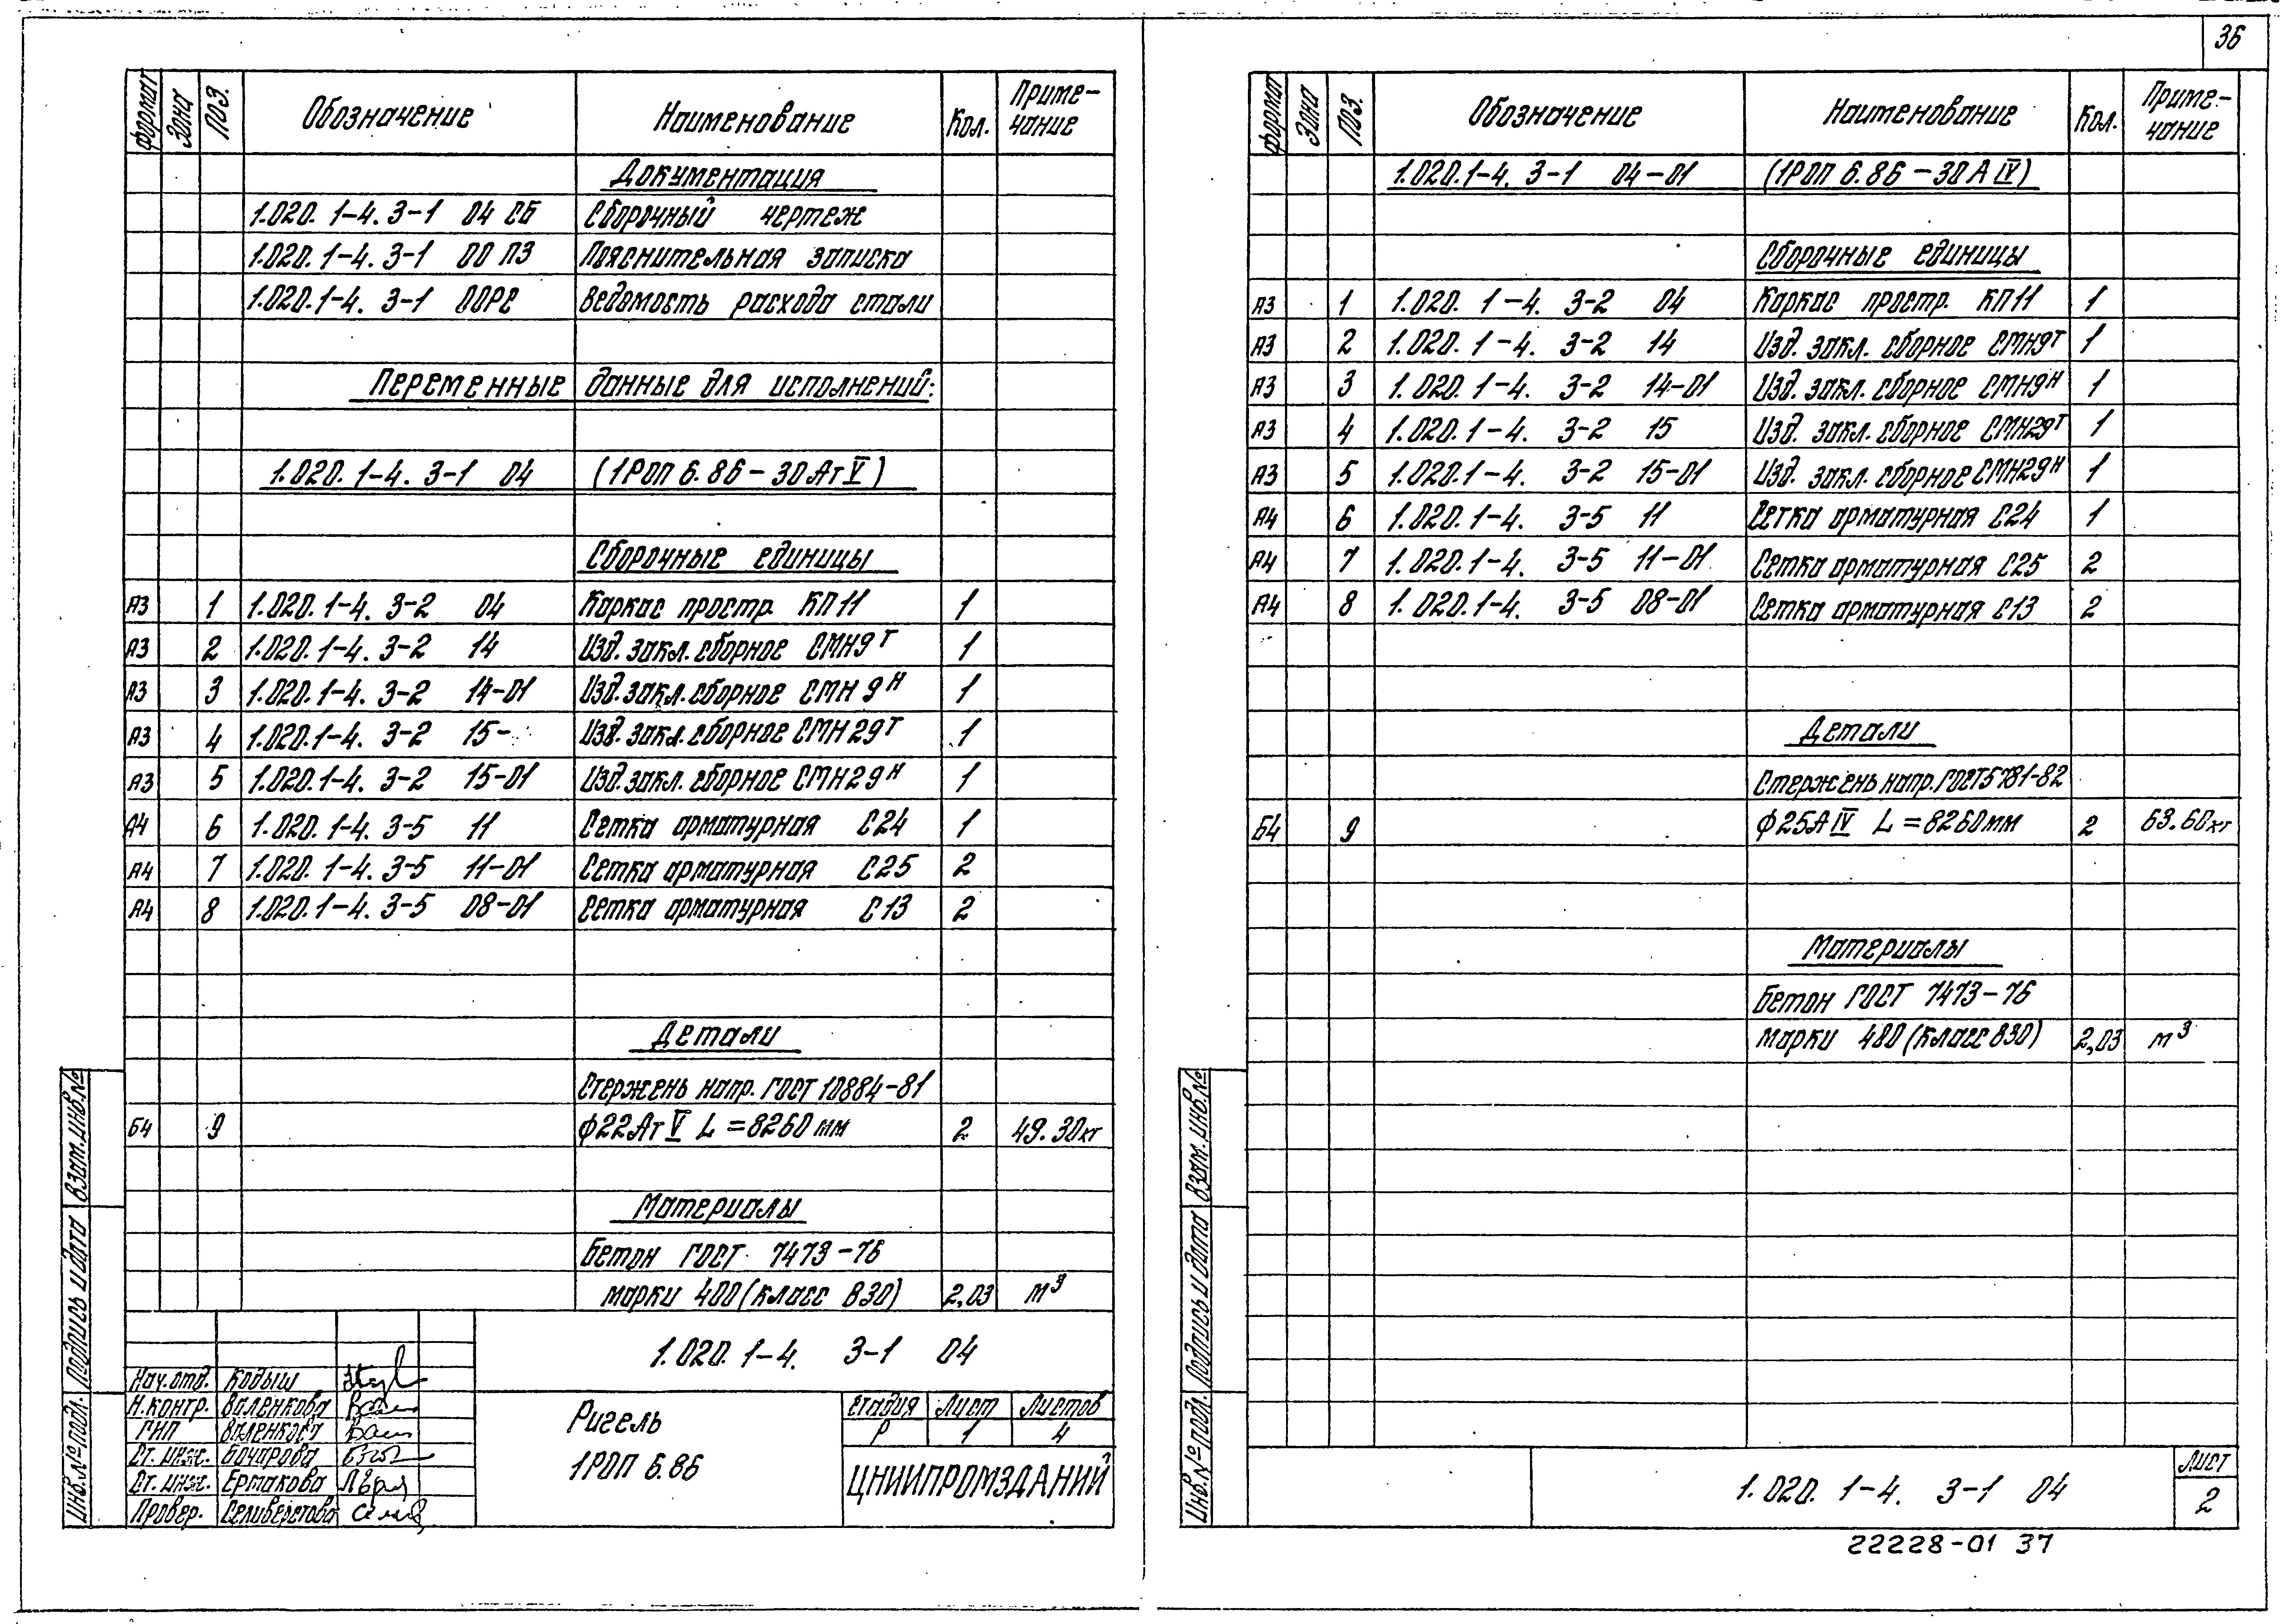 36
Формат Зона Поз. Обозначение Наименование Кол. Приме-
чание
Документация
1.020.1-4. 3-1 04 СБ Сборочный чертеж
1.020.1-4. 3-1 00 ПЗ Пояснительная записка
1.020.1-4. 3-1 00РС Ведомость расхода стали
Переменные данные для исполнений:
1.020.1-4. 3-1 04 (1РОП 6.86-30АтV)
Сборочные единицы
А3 1 1.020.1-4. 3-2 04 Каркас простр. КП11 1
А3 2 1.020.1-4. 3-2 14 Изд. закл. сборное СМН9Т 1
А3 3 1.020.1-4. 3-2 14-01 Изд. закл. сборное СМН9Н 1
А3 4 1.020.1-4. 3-2 15- Изд. закл. сборное СМН29Т 1
А3 5 1.020.1-4. 3-2 15-01 Изд. закл. сборное СМН29Н 1
А4 6 1.020.1-4. 3-5 11 Сетка арматурная С24 1
А4 7 1.020.1-4. 3-5 11-01 Сетка арматурная С25 2
А4 8 1.020.1-4. 3-5 08-01 Сетка арматурная С13 2
Детали
Стержень напр. ГОСТ 10884-81
Б4 9 ф22АтV L=8260мм 2 49.30кг
Материалы
Бетон ГОСТ 7473-76
марки 400 (класс В30) 2,03 м³
Взам. инв. №
Подпись и дата
Инв. № подл.
1.020.1-4. 3-1 04
Нач. отд. Кодыш
Н. контр. Валенкова
ГИП Валенкова
Ст. инж. Бочарова
Ст. инж. Ермакова
Провер. Селиверстова
Ригель
1РОП 6.86
Стадия Лист Листов
Р 1 4
ЦНИИПРОМЗДАНИЙ
Формат Зона Поз. Обозначение Наименование Кол. Приме-
чание
1.020.1-4. 3-1 04-01 (1РОП 6.86-30АIV)
Сборочные единицы
А3 1 1.020.1-4. 3-2 04 Каркас простр. КП11 1
А3 2 1.020.1-4. 3-2 14 Изд. закл. сборное СМН9Т 1
А3 3 1.020.1-4. 3-2 14-01 Изд. закл. сборное СМН9Н 1
А3 4 1.020.1-4. 3-2 15 Изд. закл. сборное СМН29Т 1
А3 5 1.020.1-4. 3-2 15-01 Изд. закл. сборное СМН29Н 1
А4 6 1.020.1-4. 3-5 11 Сетка арматурная С24 1
А4 7 1.020.1-4. 3-5 11-01 Сетка арматурная С25 2
А4 8 1.020.1-4. 3-5 08-01 Сетка арматурная С13 2
Детали
Стержень напр. ГОСТ5781-82
Б4 9 ф25АIV L=8260мм 2 63.60кг
Материалы
Бетон ГОСТ 7473-76
марки 400 (класс В30) 2,03 м³
Взам. инв. №
Подпись и дата
Инв. № подл.
1.020.1-4. 3-1 04
Лист
2
22228-01 37